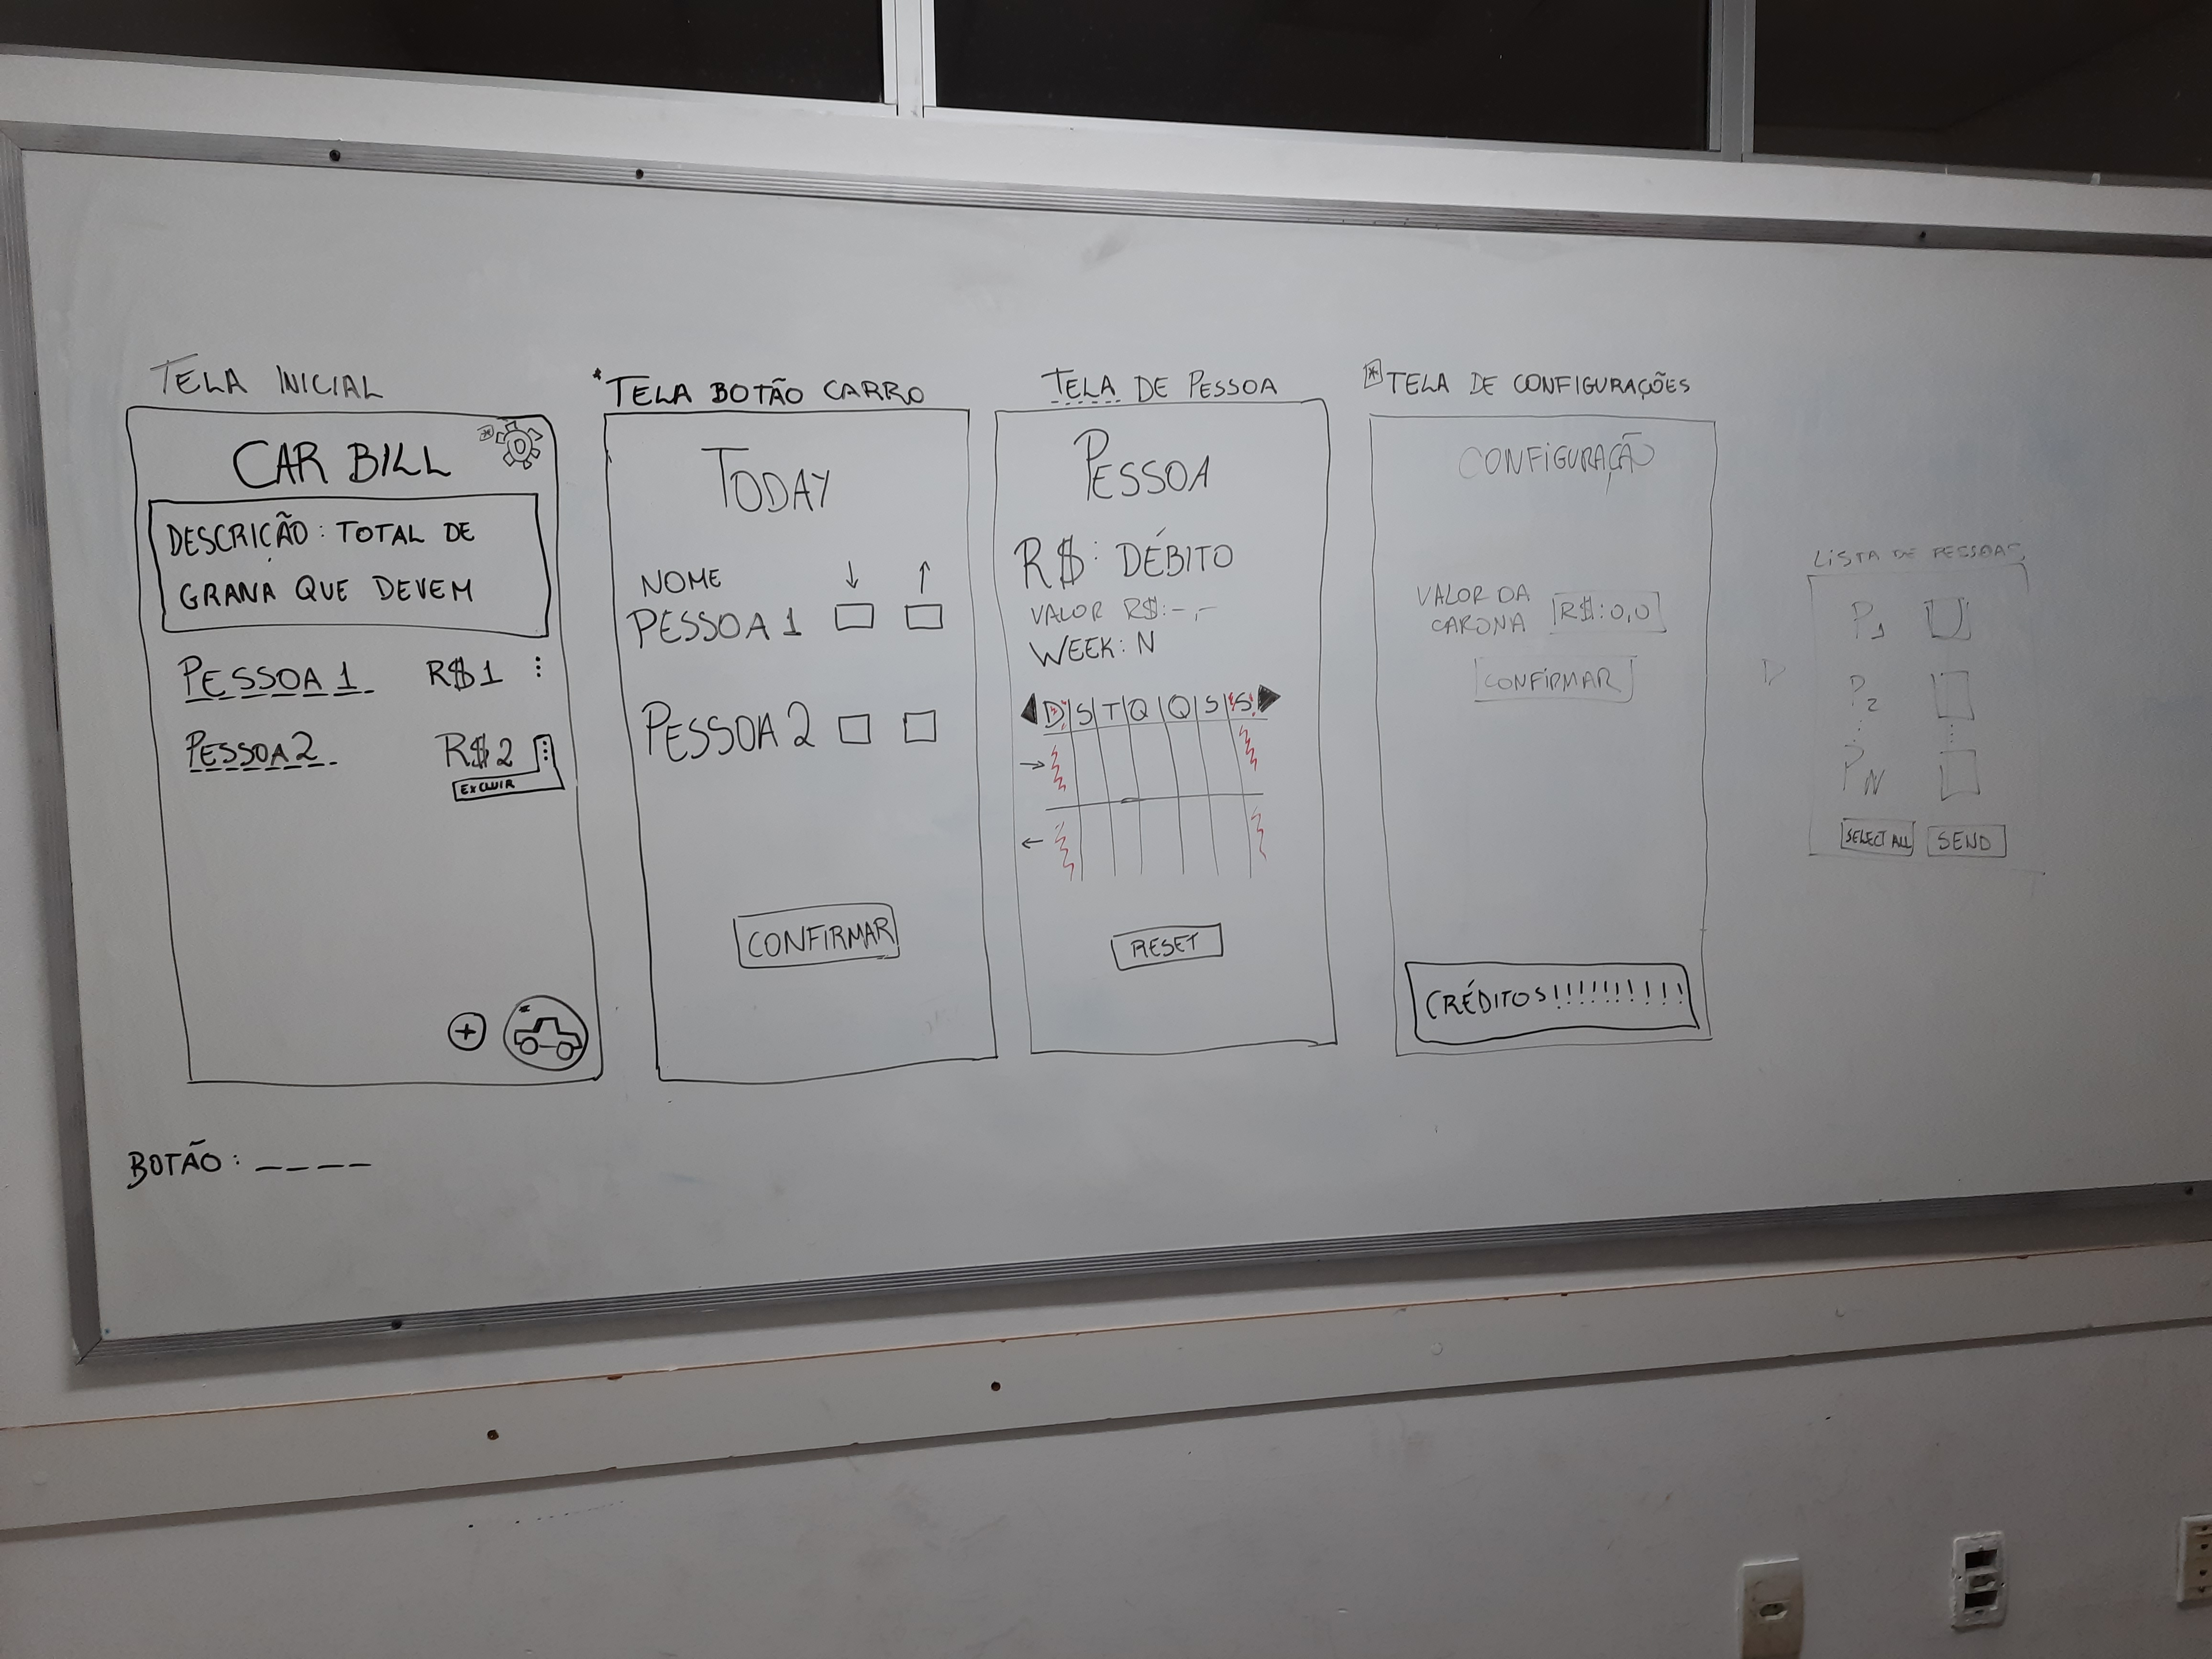 TELA INICIAL
CAR BILL
DESCRIÇÃO: TOTAL DE
GRANA QUE DEVEM
PESSOA 1 R$1
PESSOA 2 R$2
EXCLUIR
BOTÃO: ----
* TELA BOTÃO CARRO
TODAY
NOME ↓ ↑
PESSOA 1
PESSOA 2
CONFIRMAR
TELA DE PESSOA
PESSOA
R$: DÉBITO
VALOR R$:-,-
WEEK: N
D S T Q Q S S
→
←
RESET
* TELA DE CONFIGURAÇÕES
CONFIGURAÇÃO
VALOR DA
CARONA R$:0,0
CONFIRMAR
CRÉDITOS!!!!!!!!!!
LISTA DE PESSOAS
P1
P2
PN
SELECT ALL SEND